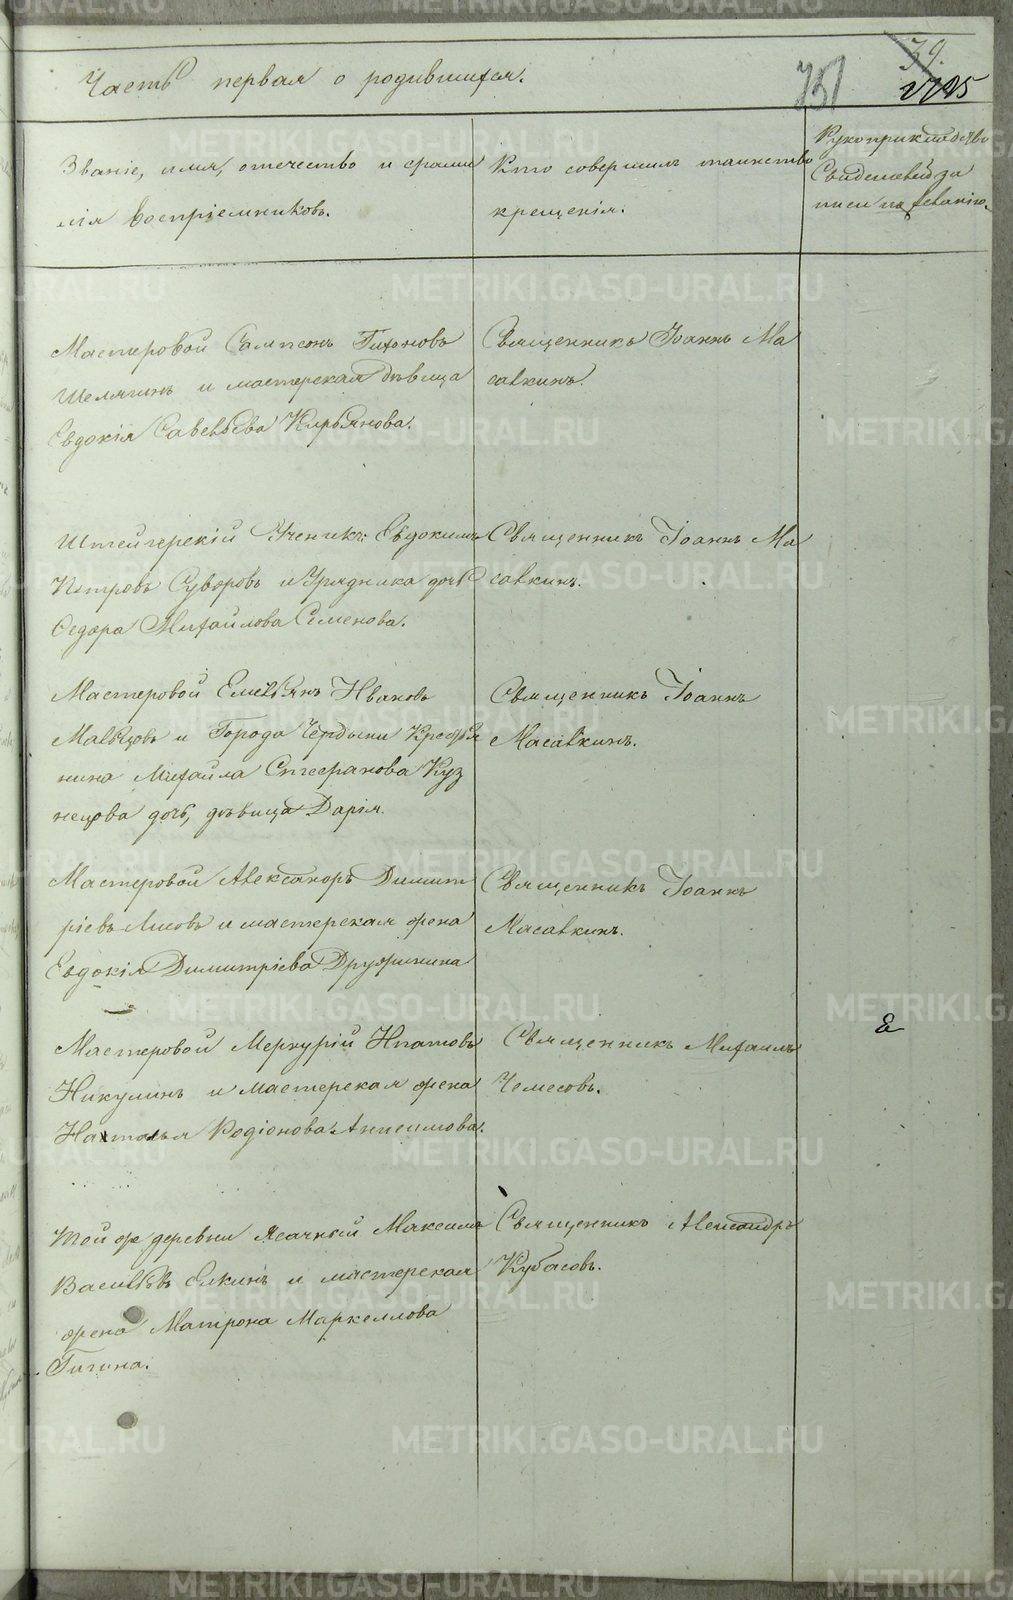 Часть первая о родившихся.
39.
751
Званіе, имя, отечество и фами
лія воспріемниковъ.
Кто совершилъ таинство
крещенія.
Рукоприкладство
Свидѣтелей за
писи по желанію.
Мастеровой Сампсонъ Тихоновъ
Шелягинъ и мастерская дѣвица
Евдокія Савельева Кирьянова.
Священникъ Іоаннъ Ма
савкинъ.
Штейгерскій Ученикъ Евдокимъ
Петровъ Суворовъ и Урядника дочь
Федора Михайлова Семенова.
Священникъ Іоаннъ Ма
савкинъ.
Мастеровой Емельянъ Ивановъ
Мальцовъ и Города Чердыни Крестья
нина Михайла Стефанова Куз
нецова дочь, дѣвица Дарія.
Священникъ Іоаннъ
Масавкинъ.
Мастеровой Александръ Димит
ріевъ Лисовъ и мастерская жена
Евдокія Димитріева Дружинина
Священникъ Іоаннъ
Масавкинъ.
Мастеровой Меркурій Ипатовъ
Никулинъ и мастерская жена
Наталья Родіонова Анисимова.
Священникъ Михаилъ
Чемесовъ.
Той же деревни Ясачный Максимъ
Васильевъ Елкинъ и мастерская
жена Матрона Маркеллова
Тигина.
Священникъ Александръ
Кубасовъ.
METRIKI.GASO-URAL.RU